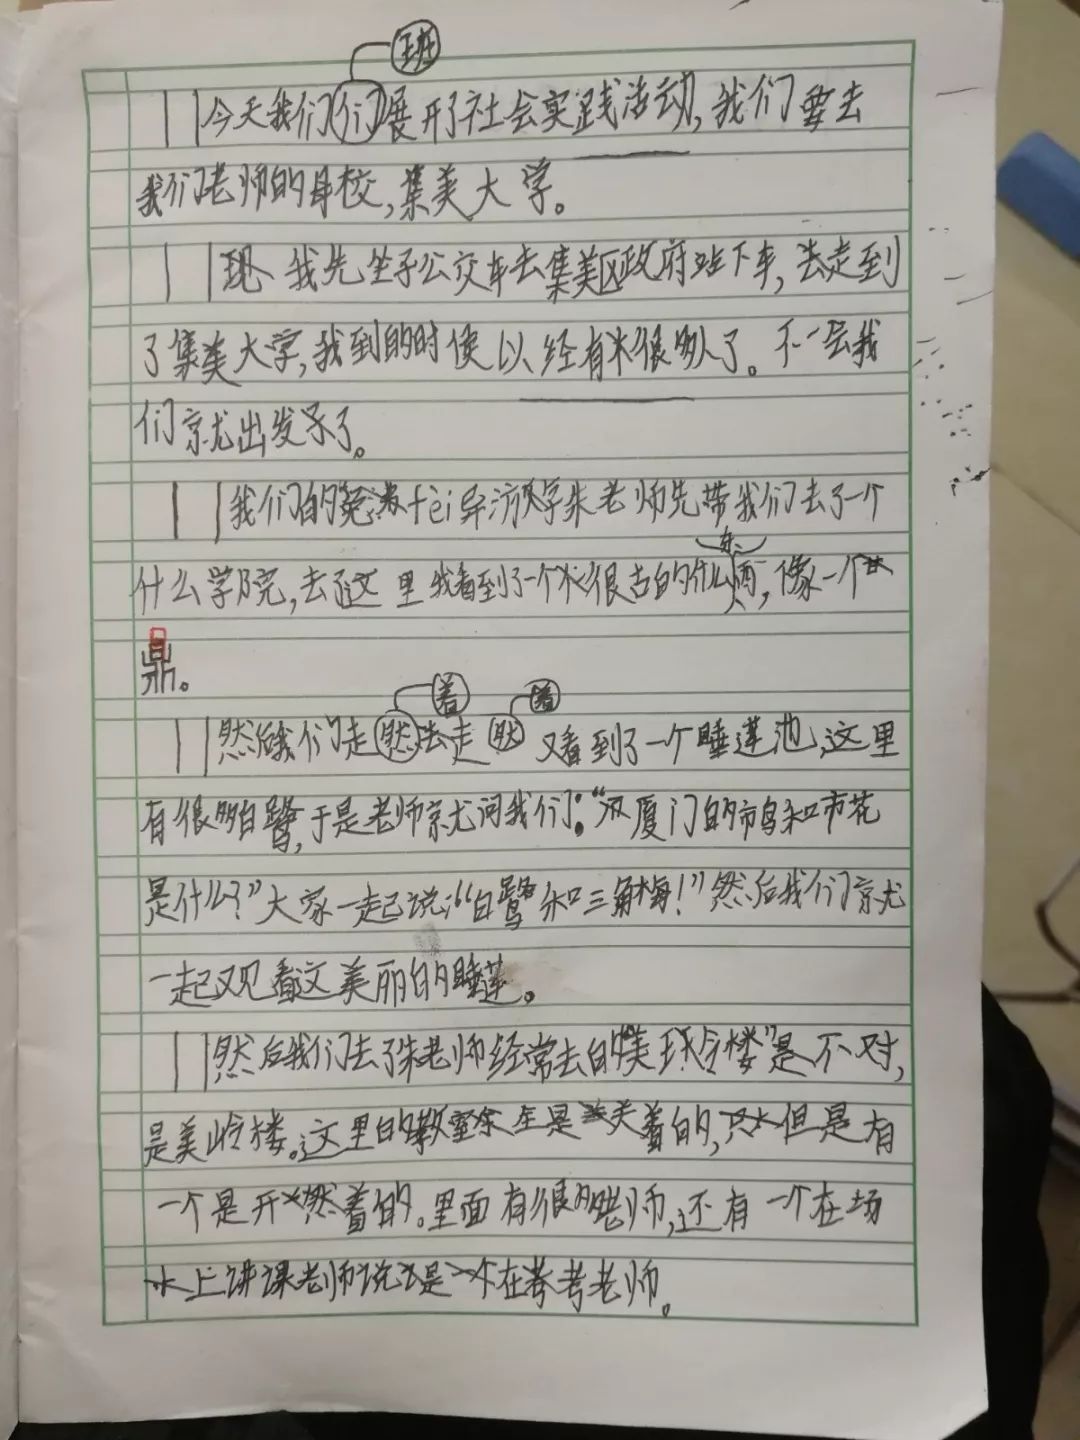 班
今天我们们展开了社会实践活动,我们要去
我们老师的母校,集美大学。
现 我先坐子公交车去集美区政府站下车,去走到
了集美大学,我到的时侯以经有很多人了。不一会我
们就出发了。
我们的 fei 导游 朱老师先带我们去了一个
什么学院,去了这里我看到了一个很古的什么东西,像一个
鼎。
着 着
然后我们走然去走然又看到了一个睡莲池,这里
有很多白鹭,于是老师就问我们:“厦门的市鸟和市花
是什么?”大家一起说:“白鹭和三角梅!”然后我们就
一起观看这美丽的睡莲。
然后我们去了朱老师经常去的“美玲楼”是不对,
是美岭楼。这里的教室全是关着的,但是有
一个是开着的。里面有很多老师,还有一个在场
上讲课老师说是在考考老师。